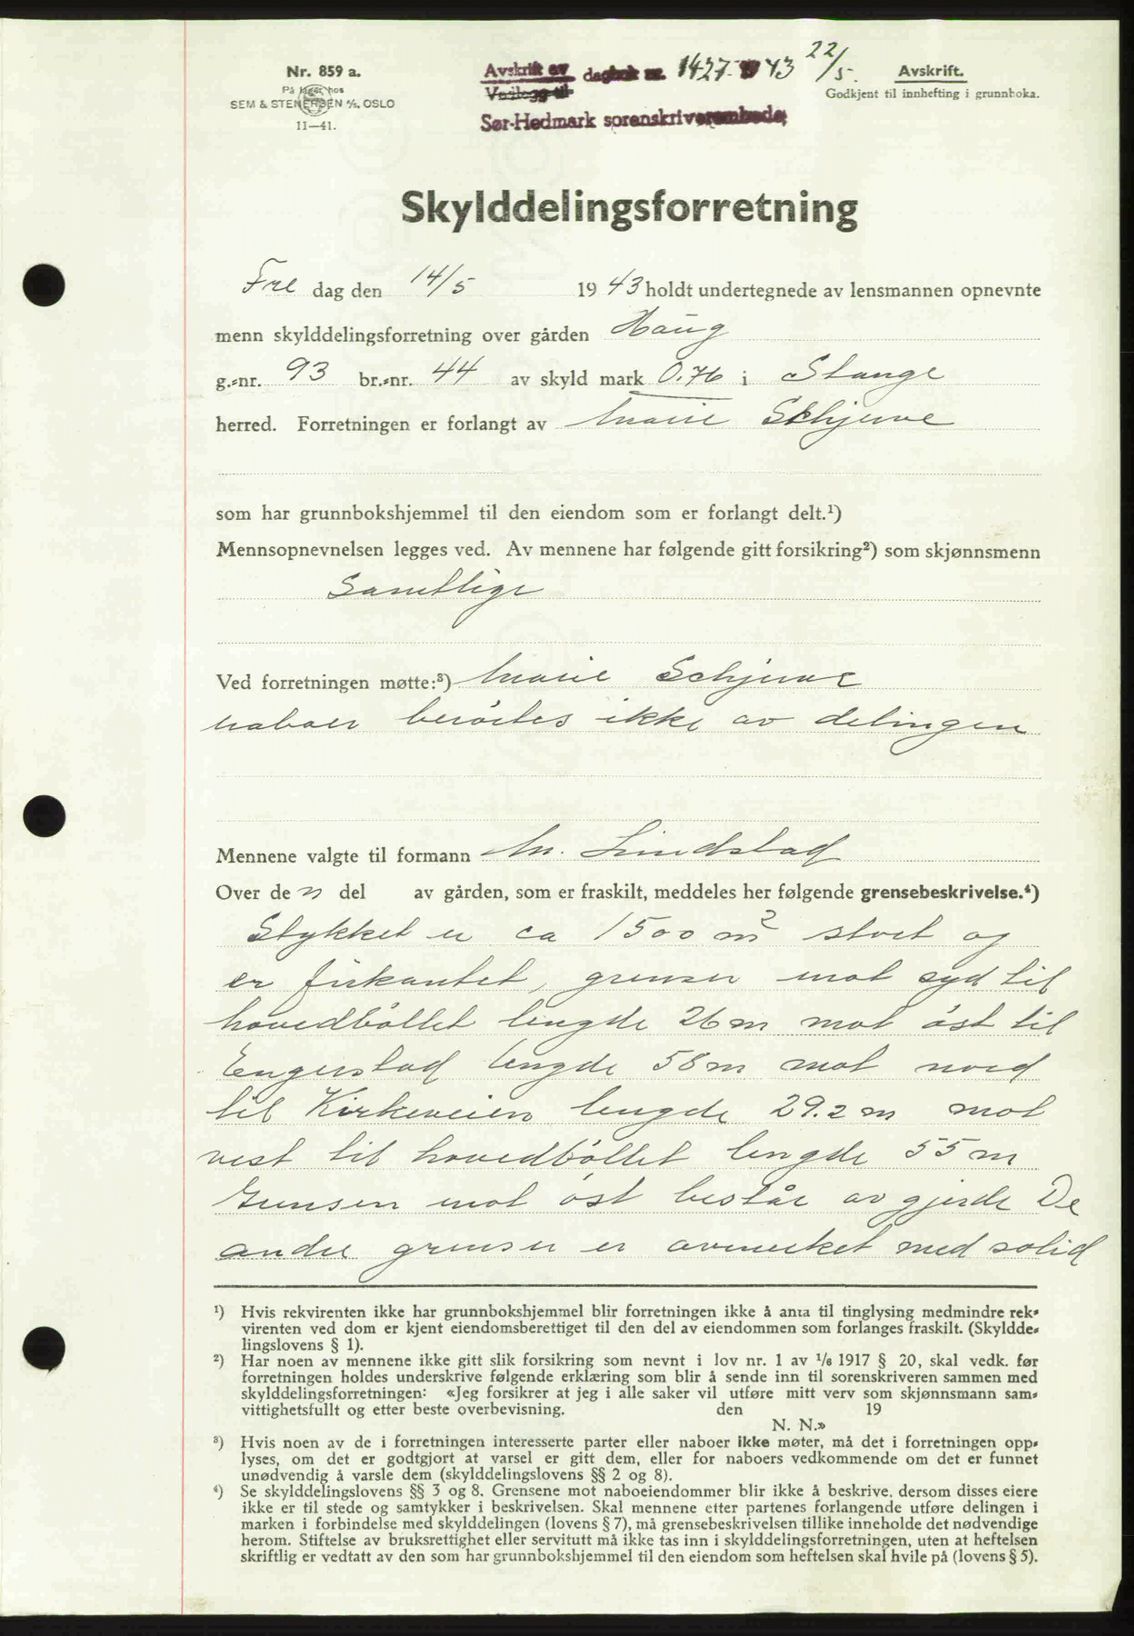 Nr. 859 a.
På lager hos
SEM & STENERSEN A/S, OSLO
11—41.
Avskrift av dagbok nr. 1427 1943 22/5.
Vedlegg til
Sør-Hedmark sorenskriverembede
Avskrift.
Godkjent til innhefting i grunnboka.
Skylddelingsforretning
Fre dag den 14/5 1943 holdt undertegnede av lensmannen opnevnte
menn skylddelingsforretning over gården Haug
g.-nr. 93 br.-nr. 44 av skyld mark 0.76 i Stange
herred. Forretningen er forlangt av Marie Schjerve
som har grunnbokshjemmel til den eiendom som er forlangt delt.¹)
Mennsopnevnelsen legges ved. Av mennene har følgende gitt forsikring²) som skjønnsmenn
Samtlige
Ved forretningen møtte:³) Marie Schjerve
naboer berörtes ikke av delingen
Mennene valgte til formann M. Lindstad
Over den del av gården, som er fraskilt, meddeles her følgende grensebeskrivelse.⁴)
Stykket er ca 1500 m² stort og
er firkantet, grenser mot syd til
hovedböllet lengde 26 m mot öst til
Engerstad lengde 58 m mot nord
til Kirkeveien lengde 29.2 m mot
vest til hovedböllet lengde 55 m
Grensen mot öst består av gjerde De
andre grenser er avmerket med solid
¹) Hvis rekvirenten ikke har grunnbokshjemmel blir forretningen ikke å anta til tinglysing medmindre rek-
virenten ved dom er kjent eiendomsberettiget til den del av eiendommen som forlanges fraskilt. (Skyldde-
lingslovens § 1).
²) Har noen av mennene ikke gitt slik forsikring som nevnt i lov nr. 1 av 1/6 1917 § 20, skal vedk. før
forretningen holdes underskrive følgende erklæring som blir å sende inn til sorenskriveren sammen med
skylddelingsforretningen: «Jeg forsikrer at jeg i alle saker vil utføre mitt verv som skjønnsmann sam-
vittighetsfullt og etter beste overbevisning. den 19
N. N.»
³) Hvis noen av de i forretningen interesserte parter eller naboer ikke møter, må det i forretningen opp-
lyses, om det er godtgjort at varsel er gitt dem, eller for naboers vedkommende om det er funnet
unødvendig å varsle dem (skylddelingslovens §§ 2 og 8).
⁴) Se skylddelingslovens §§ 3 og 8. Grensene mot naboeiendommer blir ikke å beskrive, dersom disses eiere
ikke er til stede og samtykker i beskrivelsen. Skal mennene etter partenes forlangende utføre delingen i
marken i forbindelse med skylddelingen (lovens § 7), må grensebeskrivelsen tillike inneholde det nødvendige
herom. Stiftelse av bruksrettighet eller servitutt må ikke tas inn i skylddelingsforretningen, uten at heftelsen
skriftlig er vedtatt av den som har grunnbokshjemmel til den eiendom som heftelsen skal hvile på (lovens § 5).